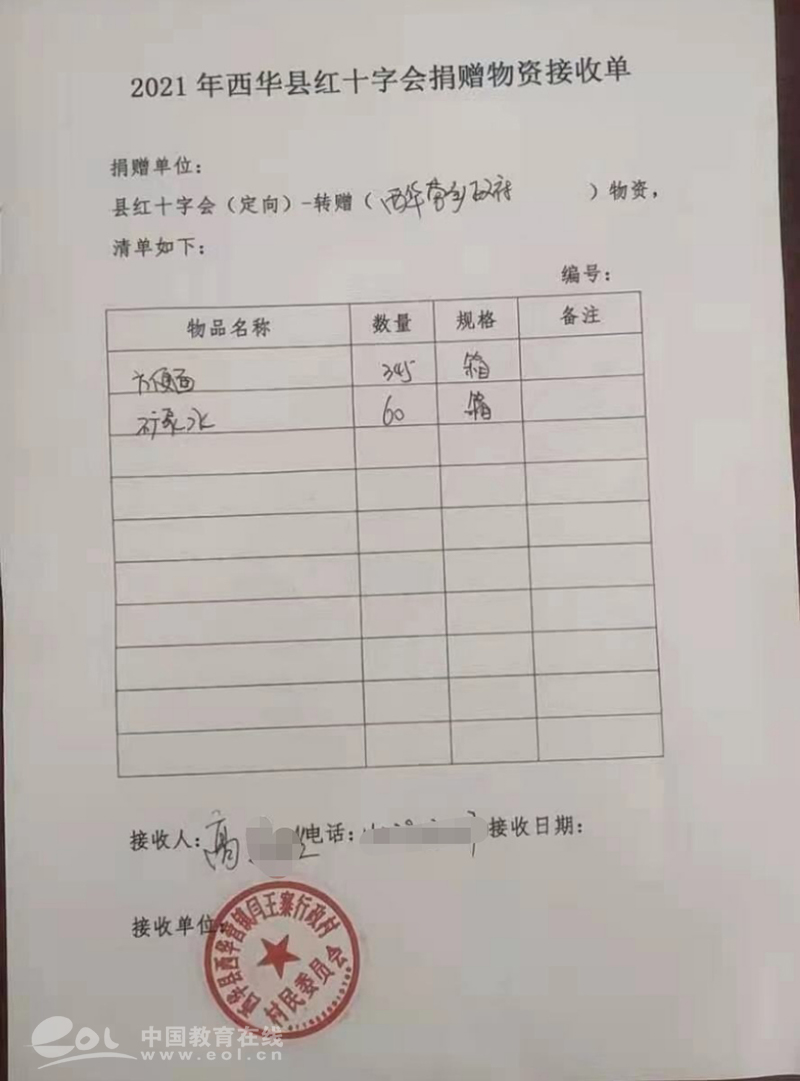 2021年西华县红十字会捐赠物资接收单
捐赠单位:
县红十字会（定向）-转赠（西华营乡政府）物资，
清单如下:
编号:
物品名称 数量 规格 备注
方便面 345 箱
矿泉水 60 箱
接收人:高 电话: 接收日期:
接收单位:
西华县西华营镇闫王寨行政村
村民委员会
eol 中国教育在线
www.eol.cn